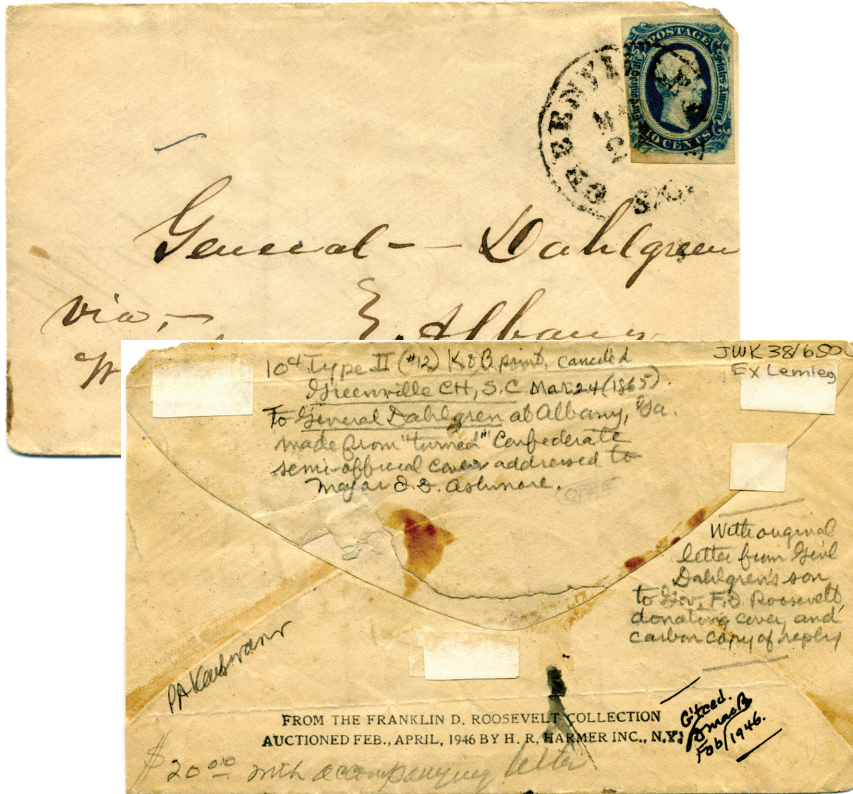 POSTAGE
10 CENTS
GREENVIL
S.C.
General - Dahlgren
via, - E. Albany
JWK 38/650
Ex Lemley
10¢ Type II (#12) K&B print, canceled
Greenville CH, S.C Mar 24 (1865).
To General Dahlgren at Albany, Ga.
made from "turned" Confederate
semi-official cover addressed to
Major J. D. Ashmore.
With original
letter from Genl
Dahlgren's son
to Gov. F. D. Roosevelt,
donating cover, and
carbon copy of reply
FROM THE FRANKLIN D. ROOSEVELT COLLECTION
AUCTIONED FEB., APRIL, 1946 BY H. R. HARMER INC., N.Y.
G'teed.
Feb/1946.
$20.00 with accompanying letter